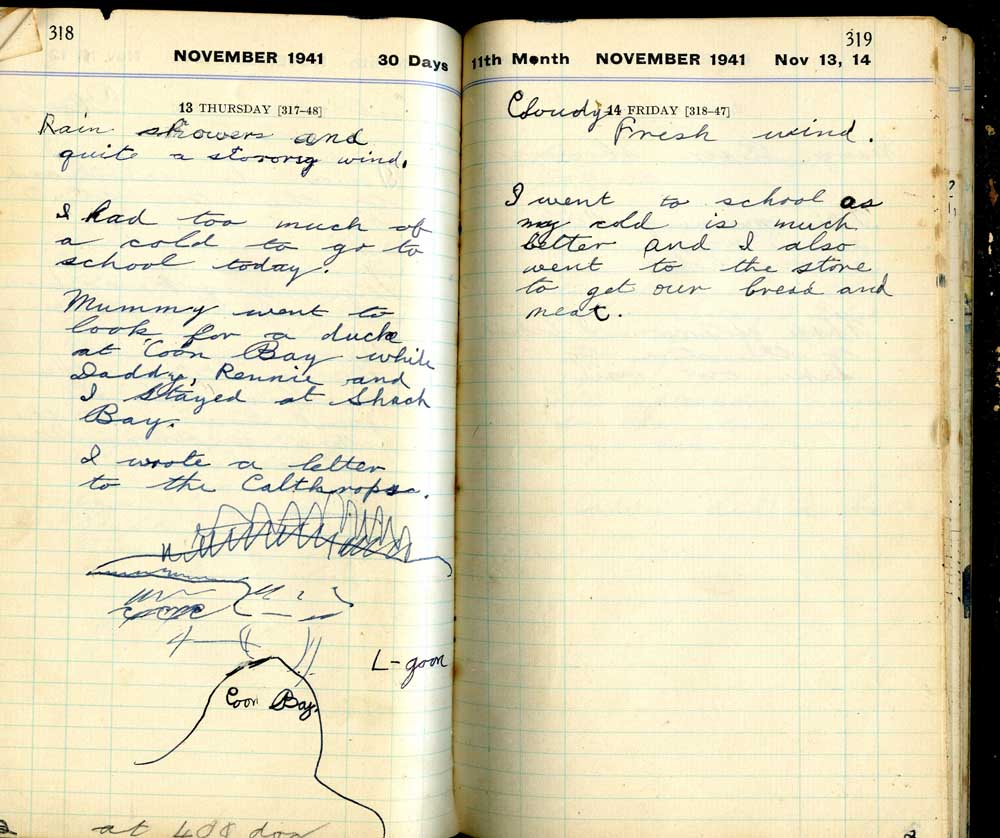 318
NOVEMBER 1941 30 Days
13 THURSDAY [317-48]
Rain showers and
quite a stormy wind.
I had too much of
a cold to go to
school today.
Mummy went to
look for a duck
at Coon Bay while
Daddy, Rennie and
I stayed at Shack
Bay.
I wrote a letter
to the Calthrops.
L-goon
Coon Bay.
at
319
11th Month NOVEMBER 1941 Nov 13, 14
14 FRIDAY [318-47]
Cloudy
Fresh wind.
I went to school as
my cold is much
better and I also
went to the store
to get our bread and
meat.